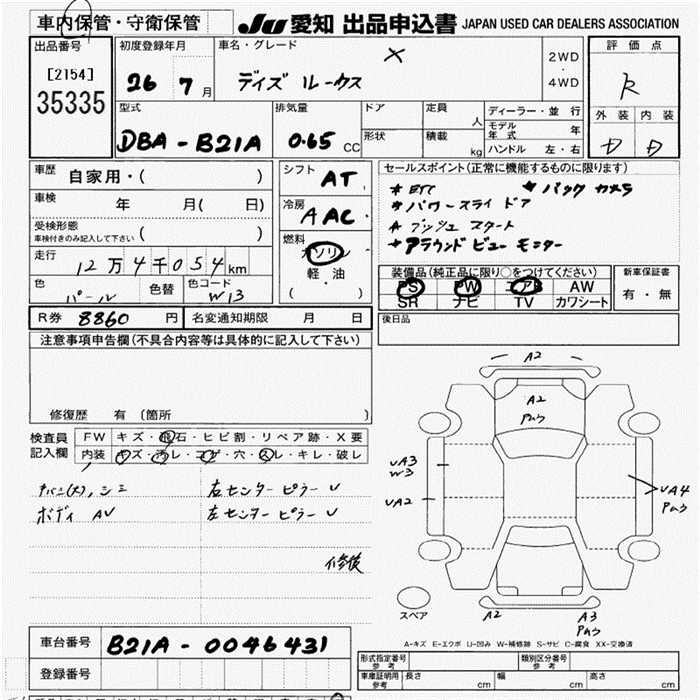 車内保管・守衛保管
JU 愛知 出品申込書 JAPAN USED CAR DEALERS ASSOCIATION
出品番号
[2154]
35335
初度登録年月
26 7 月
車名・グレード
デイズ ルークス
X
2WD
・
4WD
評価点
R
外装 内装
D D
型式
DBA-B21A
排気量
0.65 CC
ドア
形状
定員 人
積載 kg
ディーラー・並行
モデル年式 年
ハンドル 左・右
車歴 自家用・( )
車検 年 月( 日)
受検形態
車検付きのみ記入して下さい ( )
走行 12万4千054km
色 パール
色替
色コード W13
シフト AT
冷房 AAC
燃料 ガソリン
軽・油
( )
セールスポイント(正常に機能するものに限ります)
* ETC * バックカメラ
* パワースライドドア
* プッシュスタート
* アラウンドビューモニター
装備品(純正品に限り○をつけてください)
PS PW エアB AW
SR ナビ TV カワシート
新車保証書
有・無
R券 8860 円
名変通知期限 月 日
後日品
注意事項申告欄(不具合内容等は具体的に記入して下さい)
修復歴 有(箇所
検査員記入欄
FW キズ・飛石・ヒビ割・リペア跡・X要
内装 キズ・汚レ・コゲ・穴・スレ・キレ・破レ
ボディ AU
右センターピラーU
左センターピラーU
修後
A2
A2
Pムラ
UA3
W3
UA2
UA4
Pムラ
A2
A3
Pムラ
スペア
A-キズ E-エクボ U-凹み W-補修跡 S-サビ C-腐食 XX-交換済
車台番号 B21A-0046431
登録番号
形式指定番号
参考
類別区分番号
参考
車庫証明用
参考
長さ cm
幅 cm
高さ cm